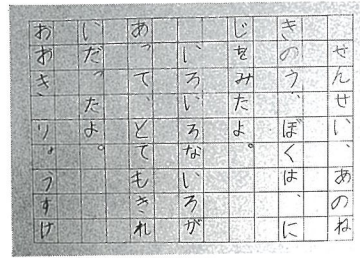 せんせい、あのね
きのう、ぼくは、に
じをみたよ。
いろいろないろが
あって、とてもきれ
いだったよ。
おおきりょうすけ